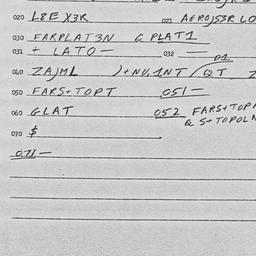 020 L8E X3R
021 AEROJS3R LO
030 FARPLAT3N G PLAT1
031 + LATO - 032 -
D1
040 ZAJML )+NU, 1NT / QT Z
050 FARS+TOPT 051 -
060 GLAT 052 FARS+TOP
& S+TOPOLN
070 $
071 -